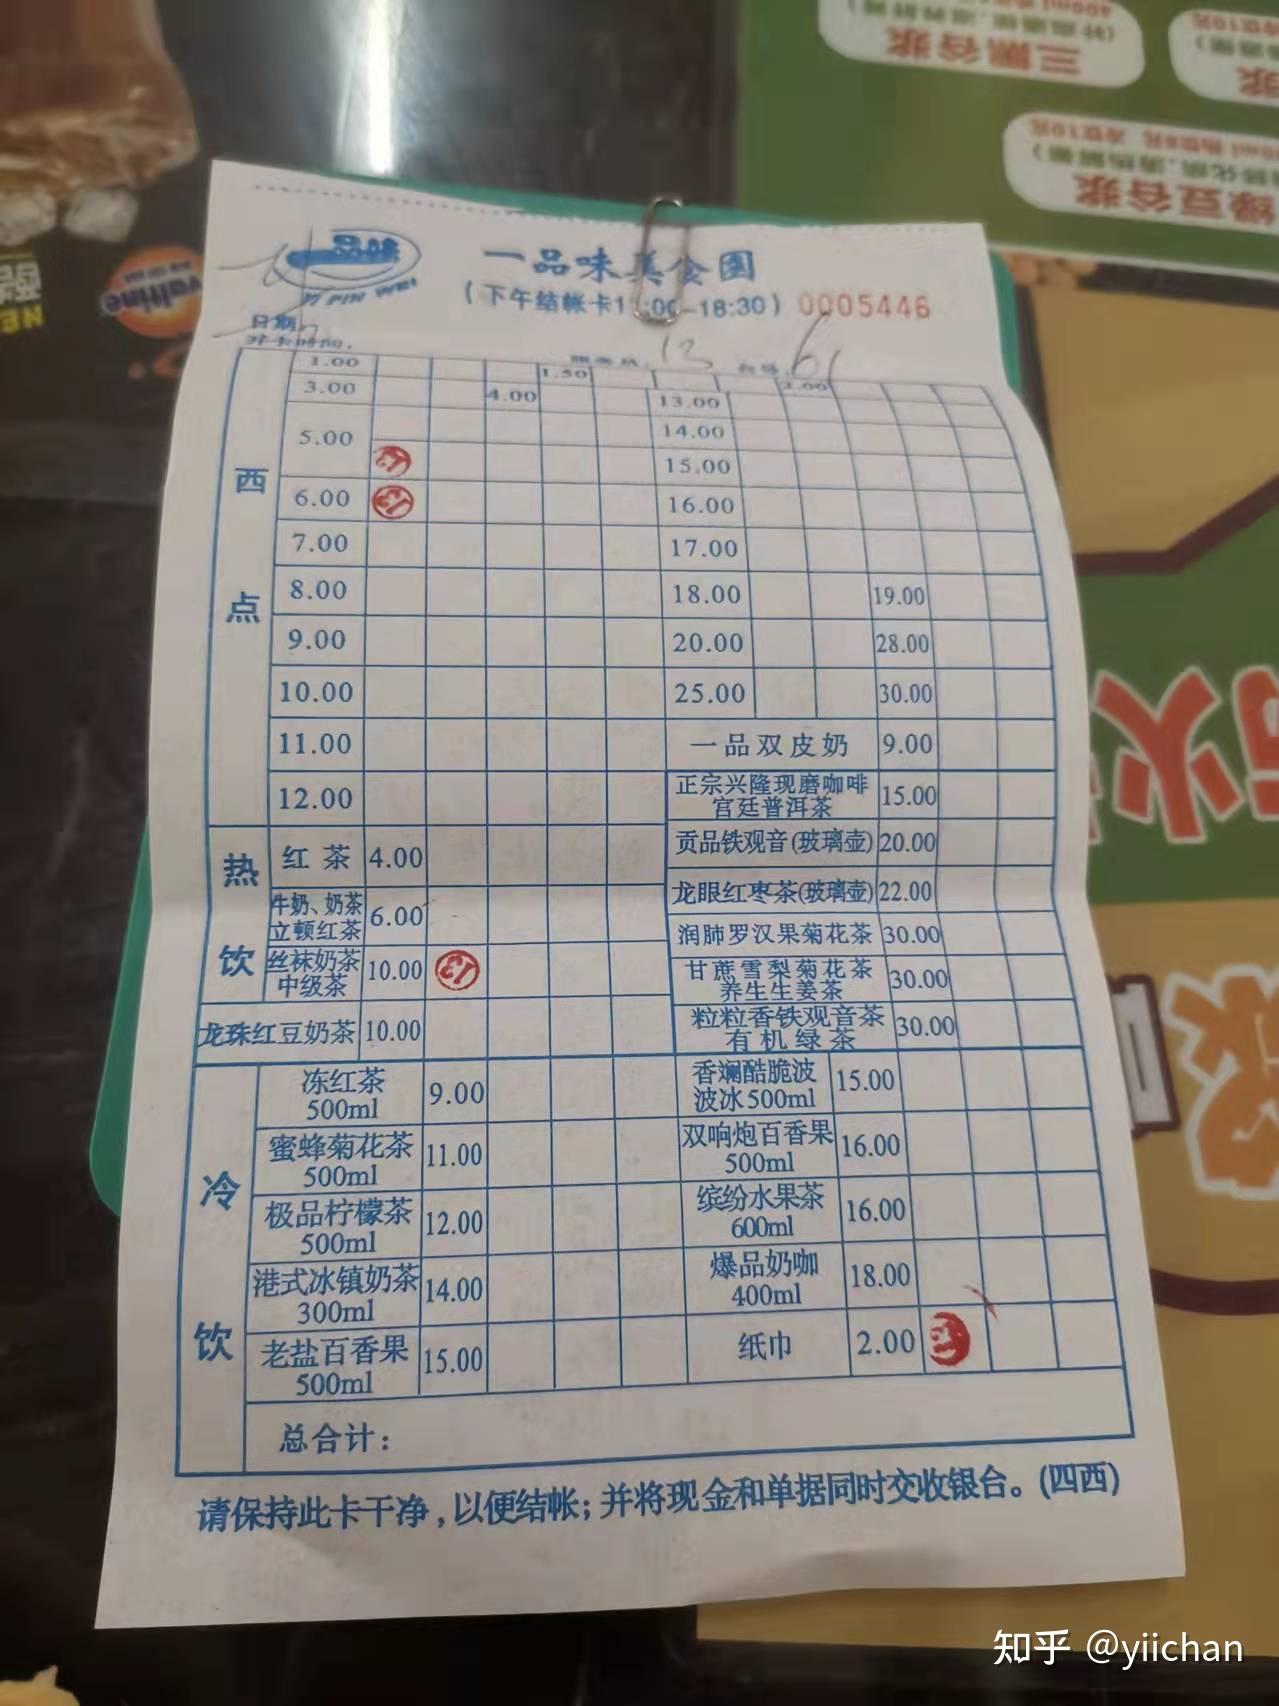 一品味
YI PIN WEI
一品味美食园
(下午结帐卡1:00-18:30) 0005446
日期:
开卡时间: 13 61
西点
1.00 1.50 2.00
3.00 4.00 13.00
5.00 14.00
13 15.00
6.00 13 16.00
7.00 17.00
8.00 18.00 19.00
9.00 20.00 28.00
10.00 25.00 30.00
11.00 一品双皮奶 9.00
12.00 正宗兴隆现磨咖啡 宫廷普洱茶 15.00
热饮
红茶 4.00 贡品铁观音(玻璃壶) 20.00
牛奶、奶茶 立顿红茶 6.00 龙眼红枣茶(玻璃壶) 22.00
润肺罗汉果菊花茶 30.00
丝袜奶茶 中级茶 10.00 13 甘蔗雪梨菊花茶 养生生姜茶 30.00
龙珠红豆奶茶 10.00 粒粒香铁观音茶 有机绿茶 30.00
冷饮
冻红茶 500ml 9.00 香斓酷脆波波冰500ml 15.00
蜜蜂菊花茶 500ml 11.00 双响炮百香果 500ml 16.00
极品柠檬茶 500ml 12.00 缤纷水果茶 600ml 16.00
港式冰镇奶茶 300ml 14.00 爆品奶咖 400ml 18.00
老盐百香果 500ml 15.00 纸巾 2.00
总合计:
请保持此卡干净,以便结帐;并将现金和单据同时交收银台。(四西)
三黑谷浆
绿豆谷浆
知乎 @yiichan